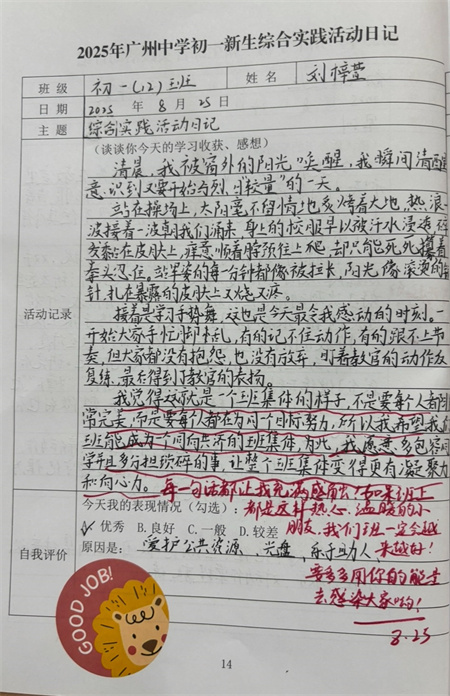 2025年广州中学初一新生综合实践活动日记
班 级 初一(12)班 姓 名 刘梓萱
日 期 2025 年 8 月 25 日
主 题 综合实践活动日记
(谈谈你今天的学习收获、感想)
清晨,我被窗外的阳光“唤醒,我瞬间清醒
意识到又要开始与烈日“较量”的一天。
站在操场上,太阳毫不留情地炙烤着大地,热浪
一波接着一波朝我们涌来,身上的校服早以被汗水浸
发黏在皮肤上,痒意顺着脖颈往上爬,却只能死死
拳头忍住。站军姿的每一分钟都像被拉长,阳光像滚烫的
针,扎在暴露的皮肤上又烧又疼。
接着是学习手势舞,这也是今天最令我感动的时刻。一
开始大家手忙脚乱,有的记不住动作,有的跟不上节
奏,但大家都没有抱怨,也没有放弃,盯着教官的动作反
复练,最后得到了教官的表扬。
我觉得这就是一个班集体的样子,不是要每个人都
常完美,而是要每人都在为同一个目标努力,所以我希望我
班能成为一个同向共济的班集体,为此,我愿意多包容同
学并且多分担琐碎的事,让整个班集体变得更有凝聚力
和向心力。
活动记录
每一句话都让我充满感动!如果班上
都是这种热心、温暖的小
朋友,我们班一定会越
来越好!
要多多用你的能量
去感染大家哟!
8.25
今天我的表现情况(勾选):
✓ 优秀 B.良好 C.一般 D.较差
自我评价
原因是: 爱护公共资源、光盘、乐于助人
GOOD JOB!
14